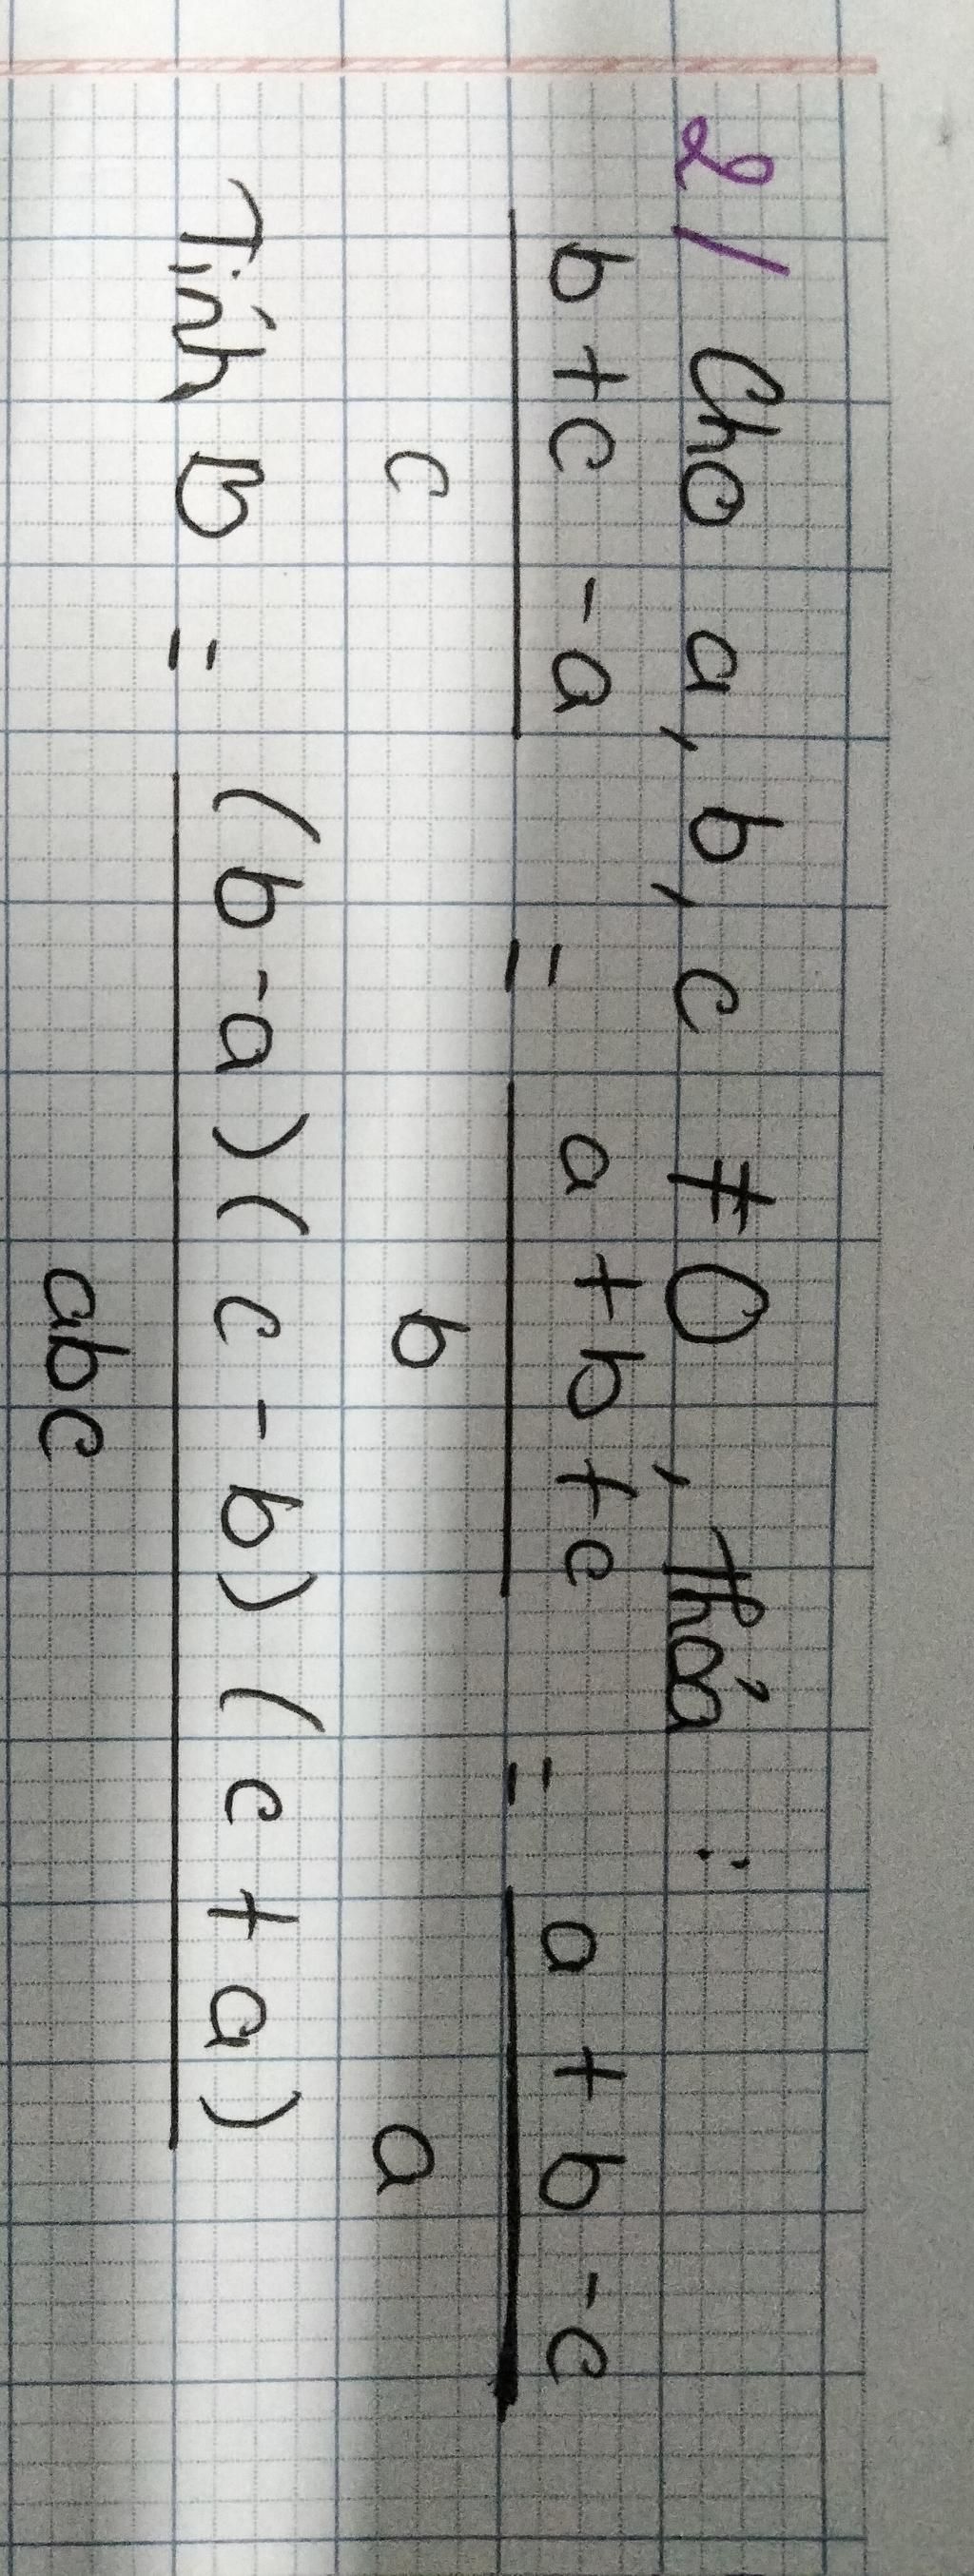 2/ Cho a, b, c ≠ 0, thỏa :
(b + c - a)/c = (a + b + c)/b = (a + b - c)/a
Tính B = ((b - a)(c - b)(c + a))/(abc)